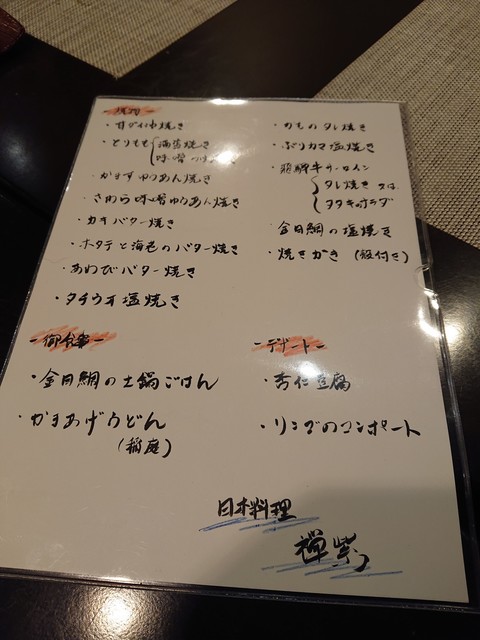 ・甘ダイゆ焼き
・とりもも 酒盗焼き
味噌
・かます ゆうあん焼き
・さわら味噌ゆうあん焼き
・カキバター焼き
・ホタテと海老のバター焼き
・あわびバター焼き
・タチウオ塩焼き
・かものタレ焼き
・ぶりカマ塩焼き
・飛騨牛サーロイン
タレ焼き 又は
タタキサラダ
・金目鯛の塩焼き
・焼きかき (殻付き)
-御食事-
・金目鯛の土鍋ごはん
・かまあげうどん
(稲庭)
-デザート-
・杏仁豆腐
・リンゴのコンポート
日本料理
禅紫